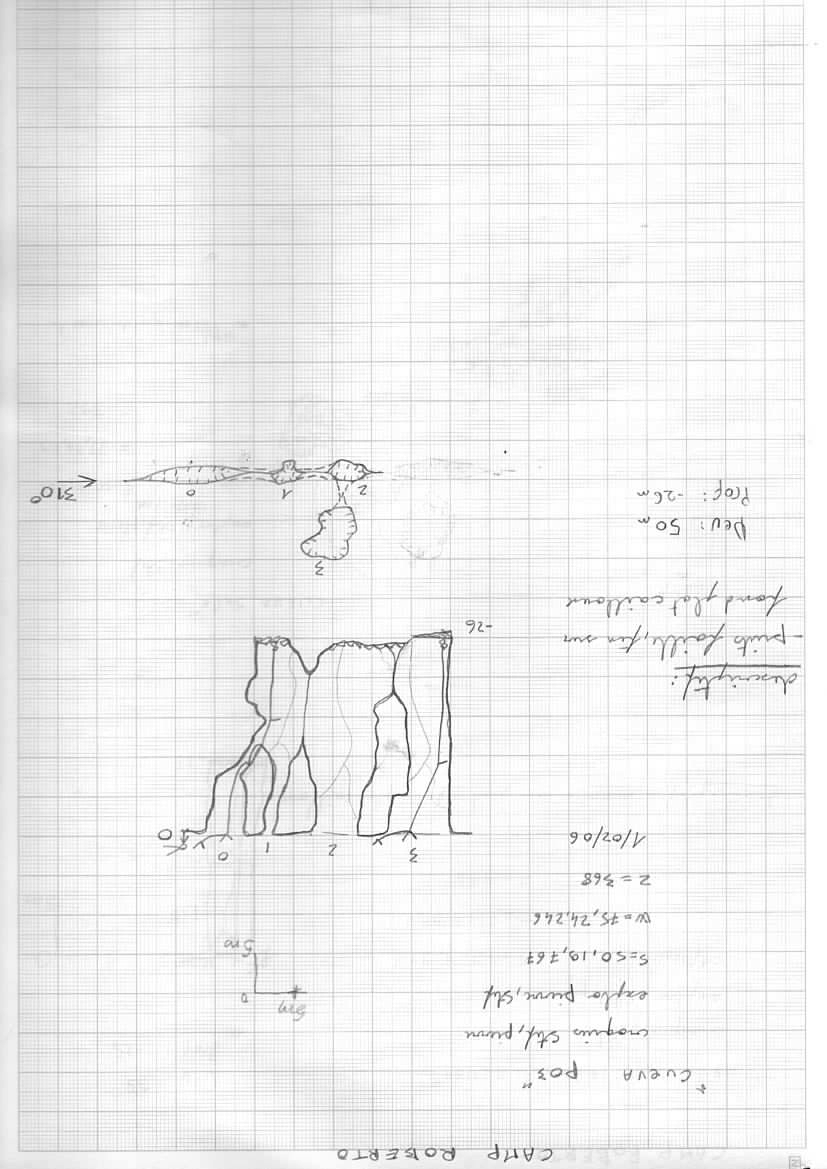 CAMP ROBERTO
"CUEVA P03"
croquis Stef, pierre
explo pierre, Stef
S=50,19,767
W=75,24,246
Z=368
1/02/06
5m
0
5m
3
2
1
0
0
-26
descriptif:
- puits faille, fin sur
fond plat cailloux
Dev: 50m
Prof: -26m
3
2
1
0
310°